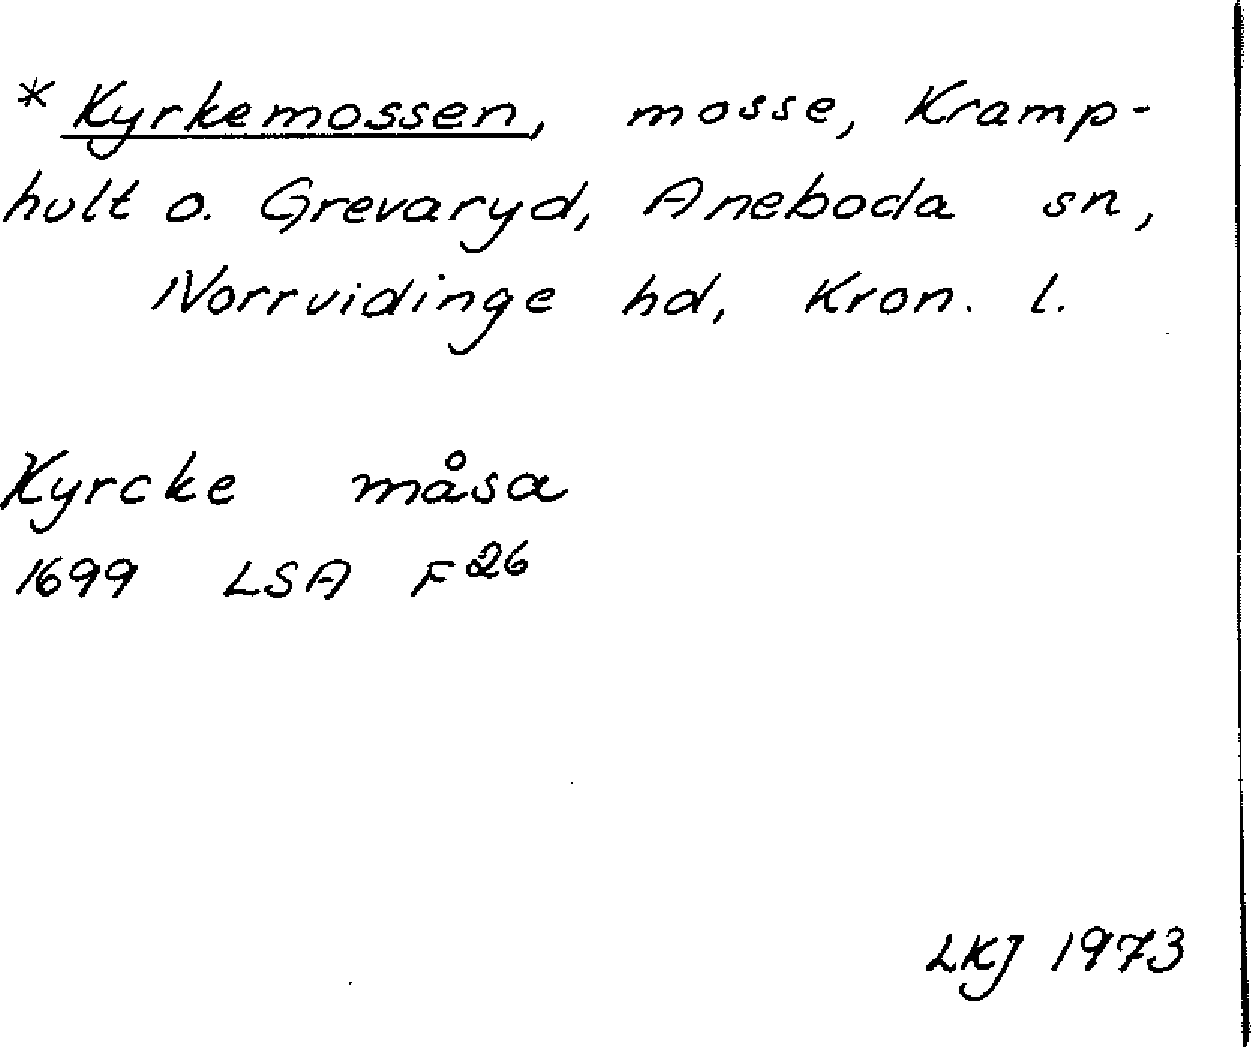 * Kyrkemossen, mosse, Kramp-
hult o. Grevaryd, Aneboda sn,
Norrvidinge hd, Kron. l.
Kyrcke måsa
1699 LSA F 26
LKJ 1973